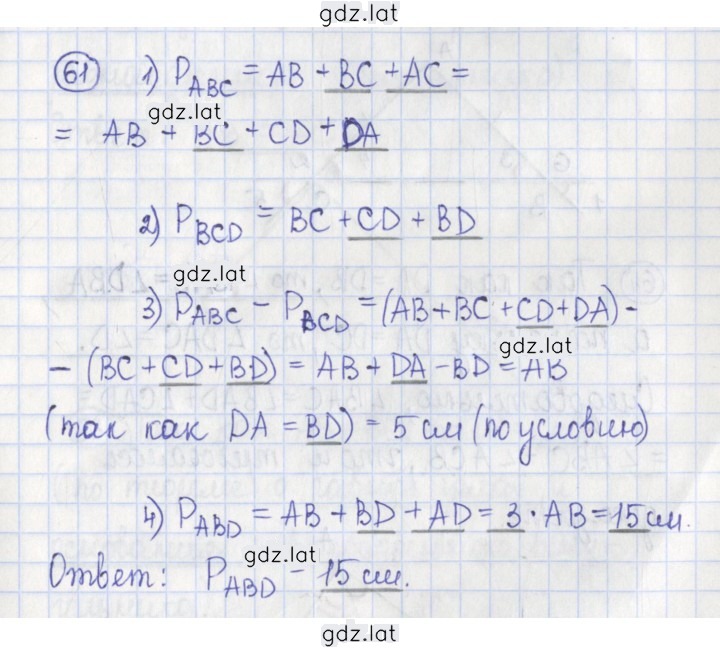 gdz.lat
61 1) P_ABC = AB + BC + AC =
gdz.lat
= AB + BC + CD + DA
2) P_BCD = BC + CD + BD
gdz.lat
3) P_ABC - P_BCD = (AB + BC + CD + DA) -
gdz.lat
- (BC + CD + BD) = AB + DA - BD = AB
(так как DA = BD) = 5 см (по условию)
4) P_ABD = AB + BD + AD = 3 · AB = 15 см.
gdz.lat
Ответ: P_ABD - 15 см.
gdz.lat